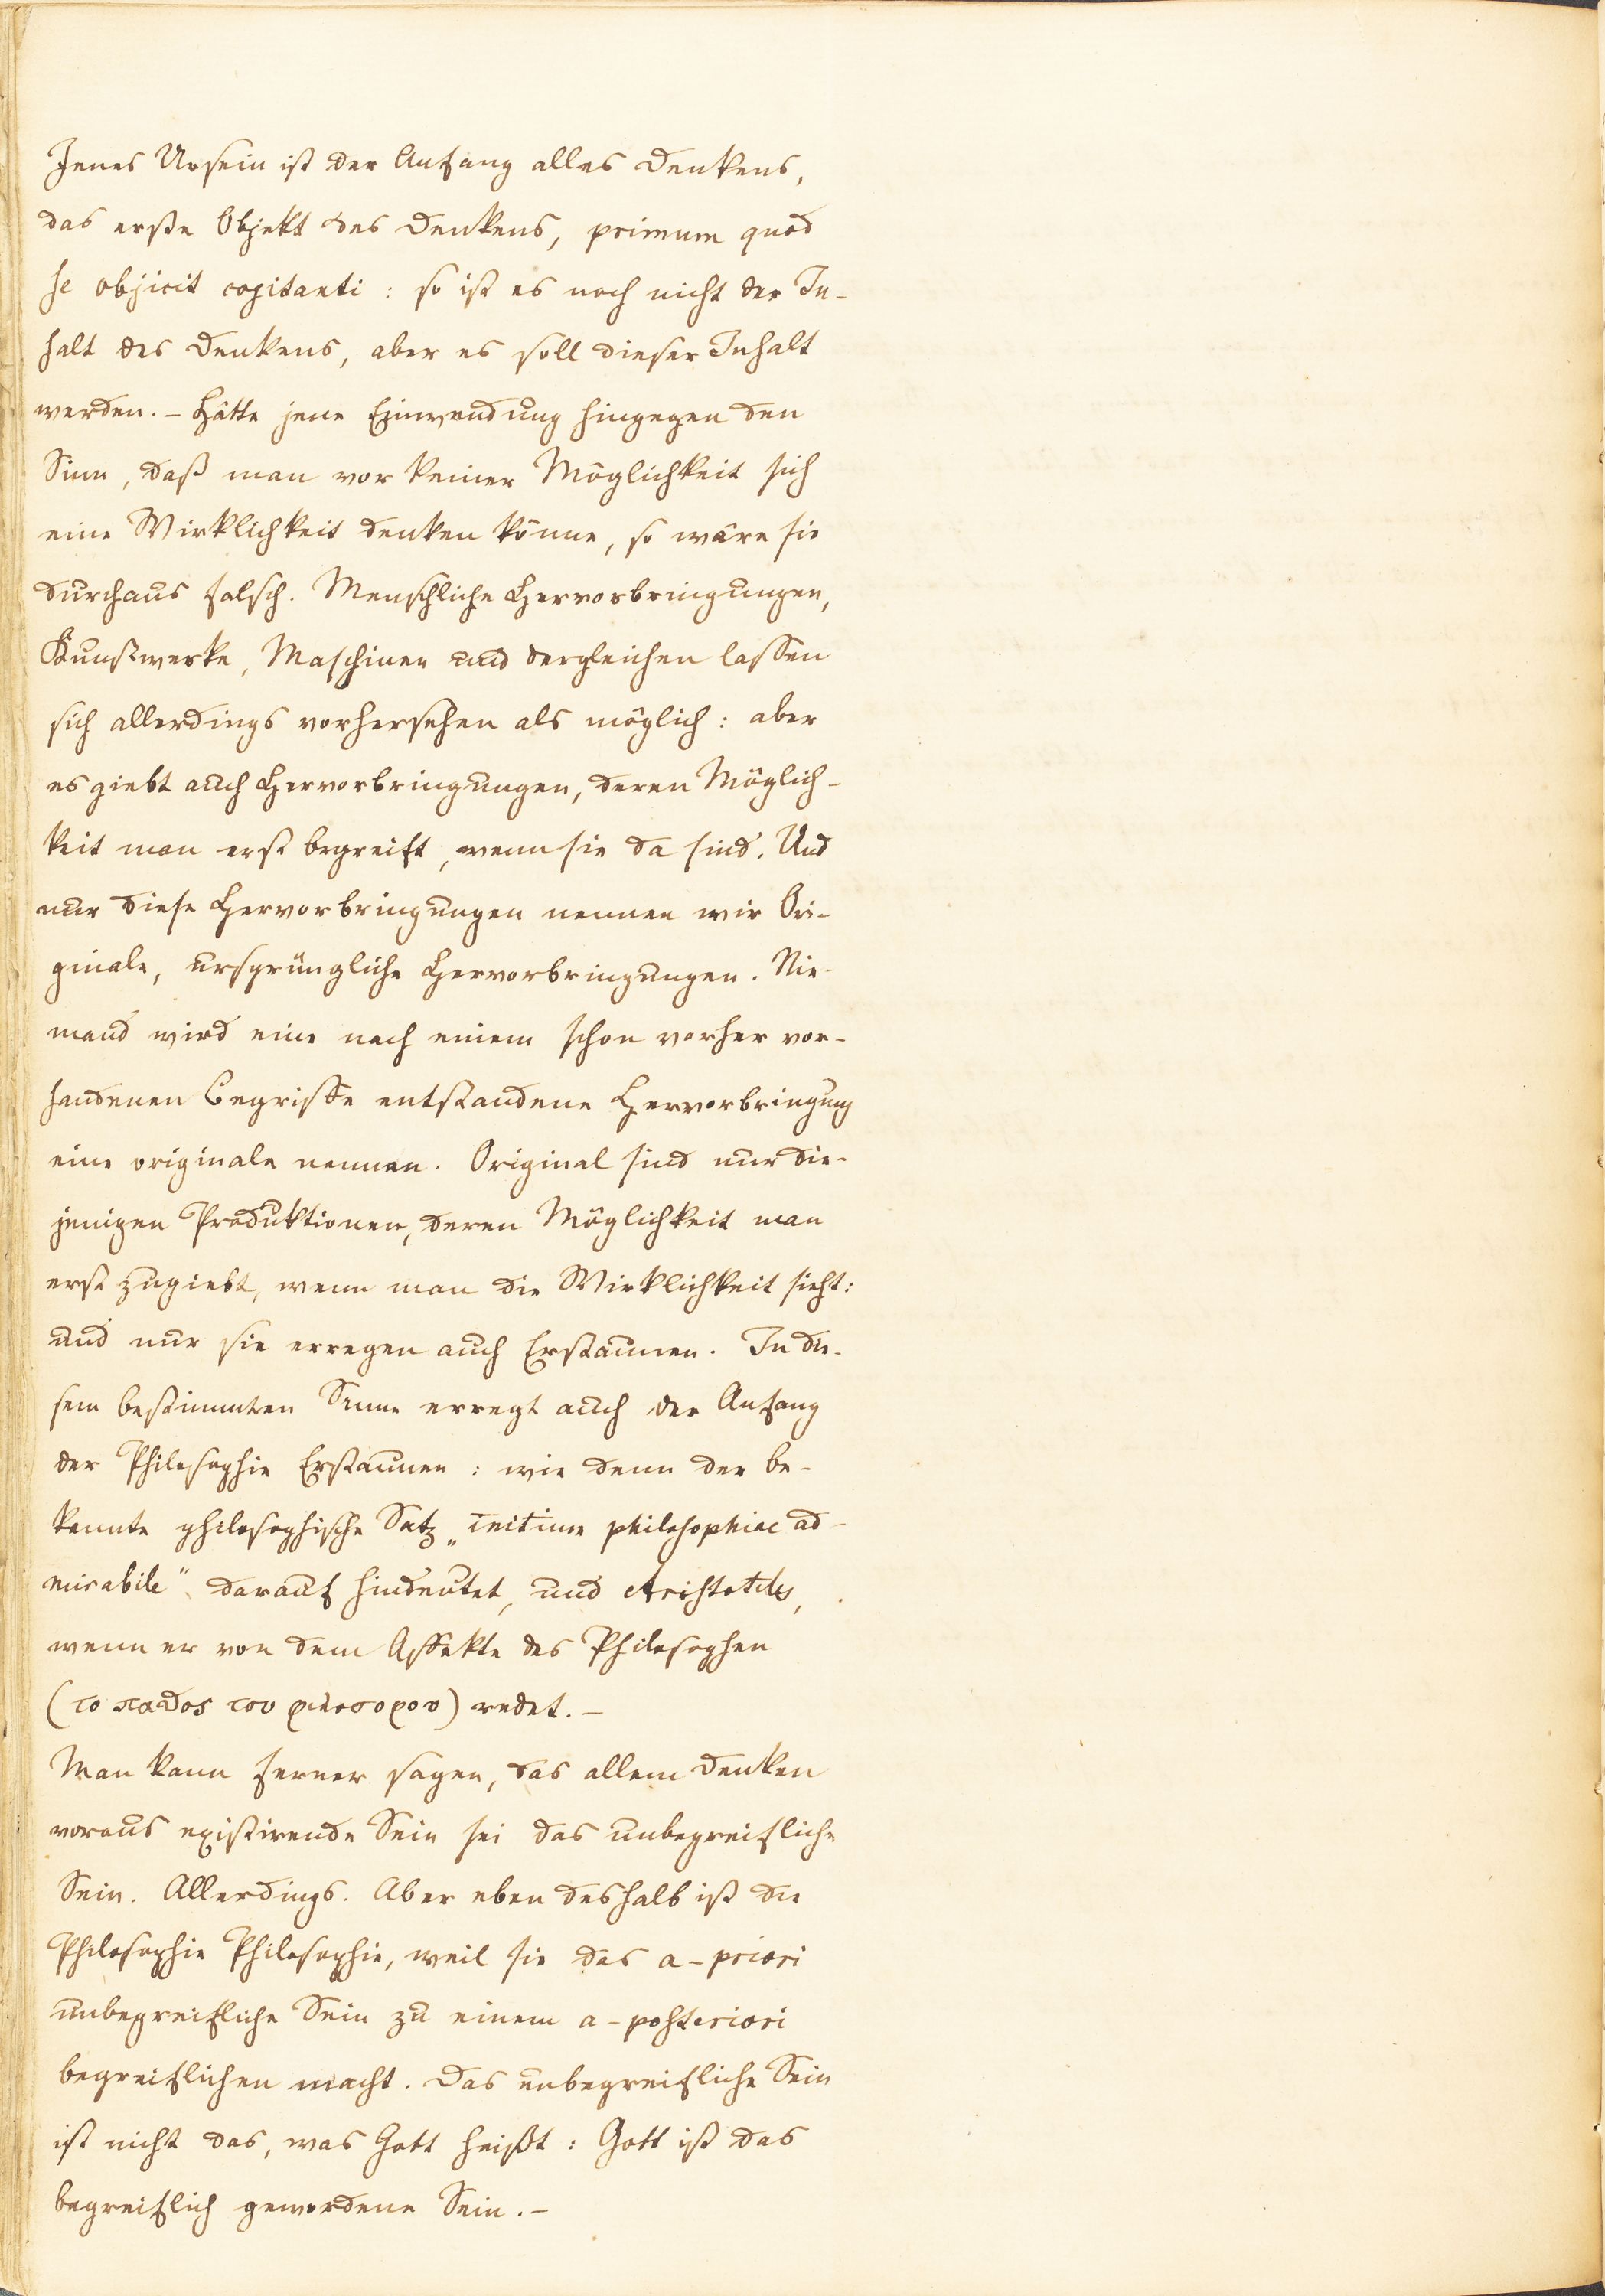 Jenes Ursein ist der Anfang alles Denkens,
das erste Objekt des Denkens, primum quod
se objicit cogitanti: so ist es noch nicht der In-
halt des Denkens, aber es soll dieser Inhalt
werden. – Hätte jene Einwendung hingegen den
Sinn, daß man vor keiner Möglichkeit sich
eine Wirklichkeit denken könne, so wäre sie
durchaus falsch. Menschliche Hervorbringungen,
Kunstwerke, Maschinen und dergleichen lassen
sich allerdings vorhersehen als möglich: aber
es giebt auch Hervorbringungen, deren Möglich-
keit man erst begreift, wenn sie da sind. Und
nur diese Hervorbringungen nennen wir Ori-
ginale, ursprüngliche Hervorbringungen. Nie-
mand wird eine nach einem schon vorher vor-
handenen Begriffe entstandene Hervorbringung
eine originale nennen. Original sind nur die-
jenigen Produktionen, deren Möglichkeit man
erst zugiebt, wenn man die Wirklichkeit sieht:
und nur sie erregen auch Erstaunen. In die-
sem bestimmten Sinne erregt auch der Anfang
der Philosophie Erstaunen: wie denn der be-
kannte philosophische Satz „initium philosophiae ad-
mirabile“ darauf hindeutet, und Aristoteles,
wenn er von dem Affekte des Philosophen
(το παϑος του φιλοσοφου) redet. –
Man kann ferner sagen, das allem Denken
voraus existirende Sein sei das unbegreifliche
Sein. Allerdings. Aber eben deshalb ist die
Philosophie Philosophie, weil sie das a-priori
unbegreifliche Sein zu einem a-posteriori
begreiflichen macht. Das unbegreifliche Sein
ist nicht das, was Gott heißt: Gott ist das
begreiflich gewordene Sein. –